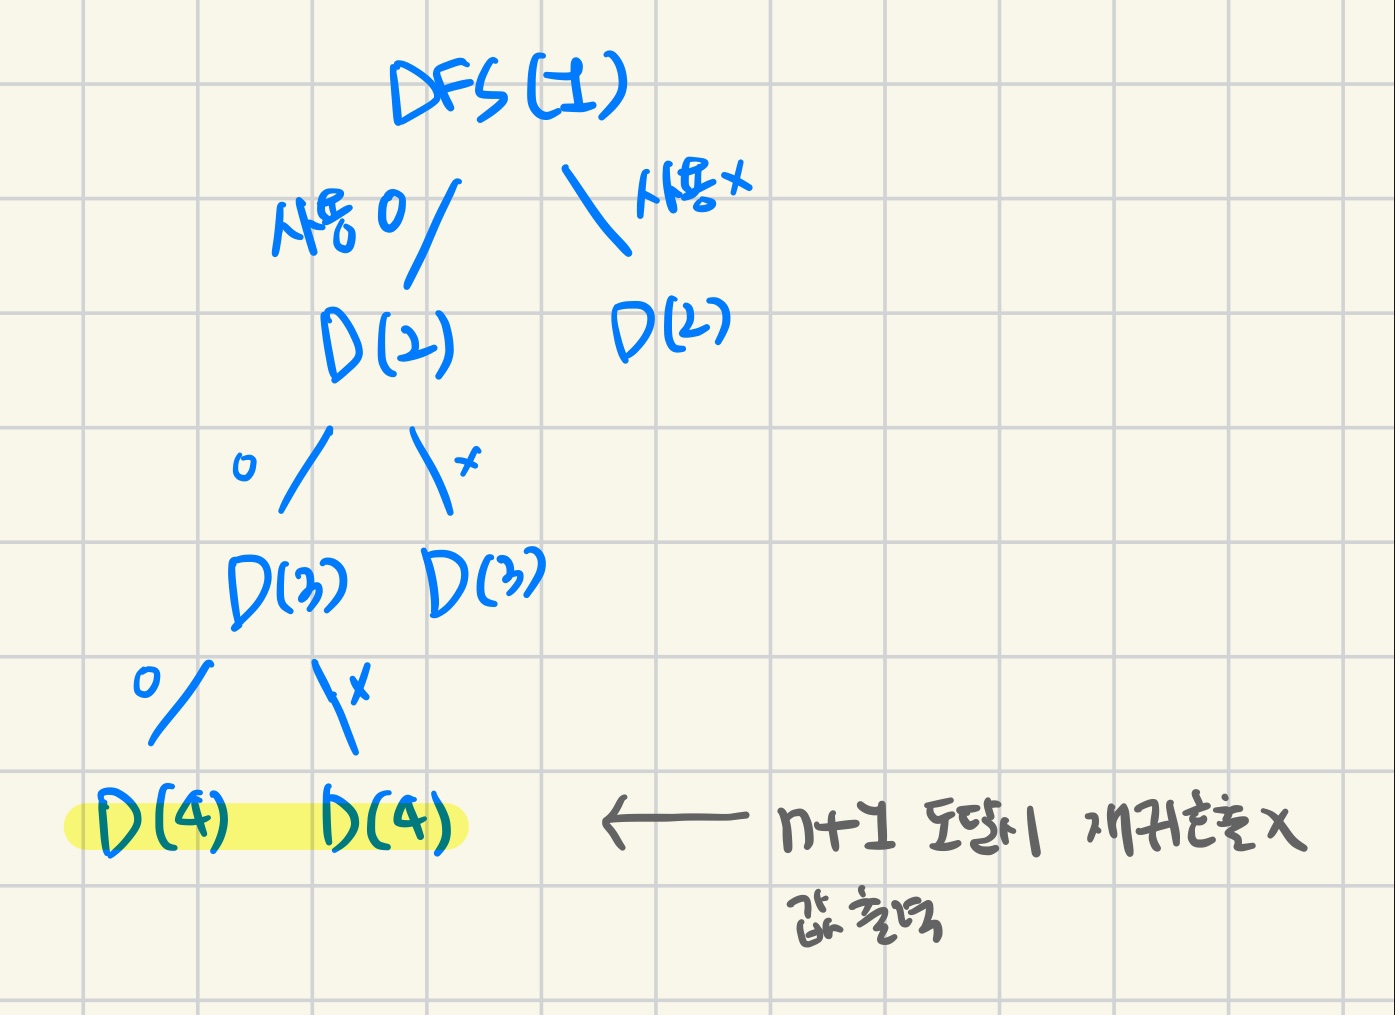 DFS(1)
사용 O 사용 x
D(2) D(2)
O x
D(3) D(3)
O x
D(4) D(4) ← n+1 도달시 재귀호출 x
값 출력